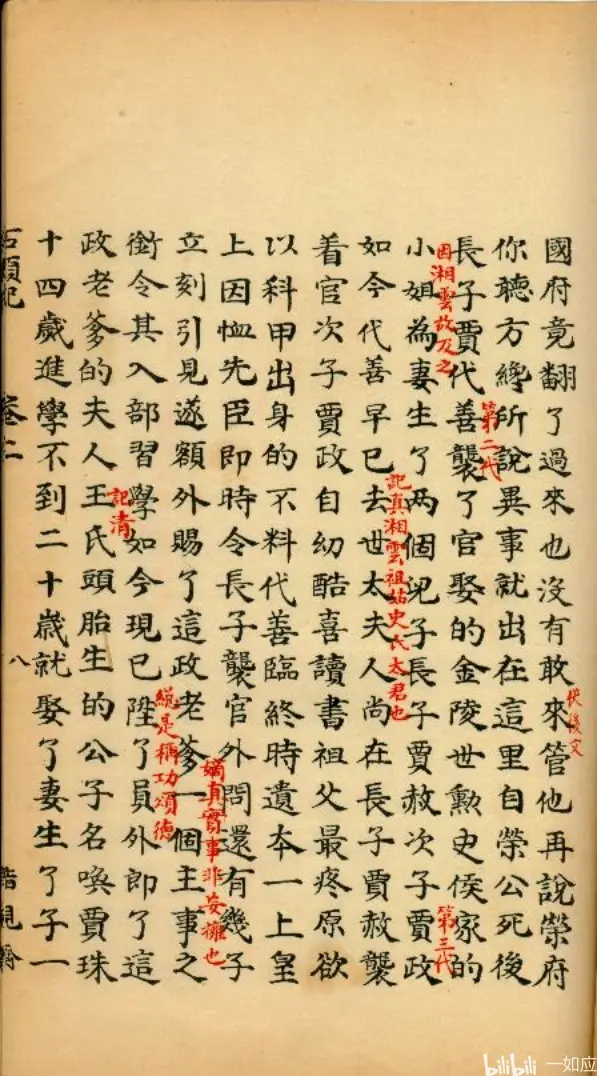 國府竟翻了過來也沒有敢來管他再說榮府
伏後文
你聽方纔所說異事就出在這里自榮公死後
第二代
長子賈代善襲了官娶的金陵世勲史侯家的
因湘雲故及之
第三代
小姐為妻生了两個兒子長子賈赦次子賈政
記真湘雲祖姑史氏太君也
如今代善早已去世太夫人尚在長子賈赦襲
着官次子賈政自幼酷喜讀書祖父最疼原欲
以科甲出身的不料代善臨終時遺本一上皇
上因恤先臣即時令長子襲官外問還有幾子
嫡真實事非妄擁也
立刻引見遂額外賜了這政老爹一個主事之
總是稱功頌德
銜令其入部習學如今現已陞了員外郎了這
記清
政老爹的夫人王氏頭胎生的公子名喚賈珠
十四歲進學不到二十歲就娶了妻生了子一
石頭記 卷二 八
bilibili 一如应